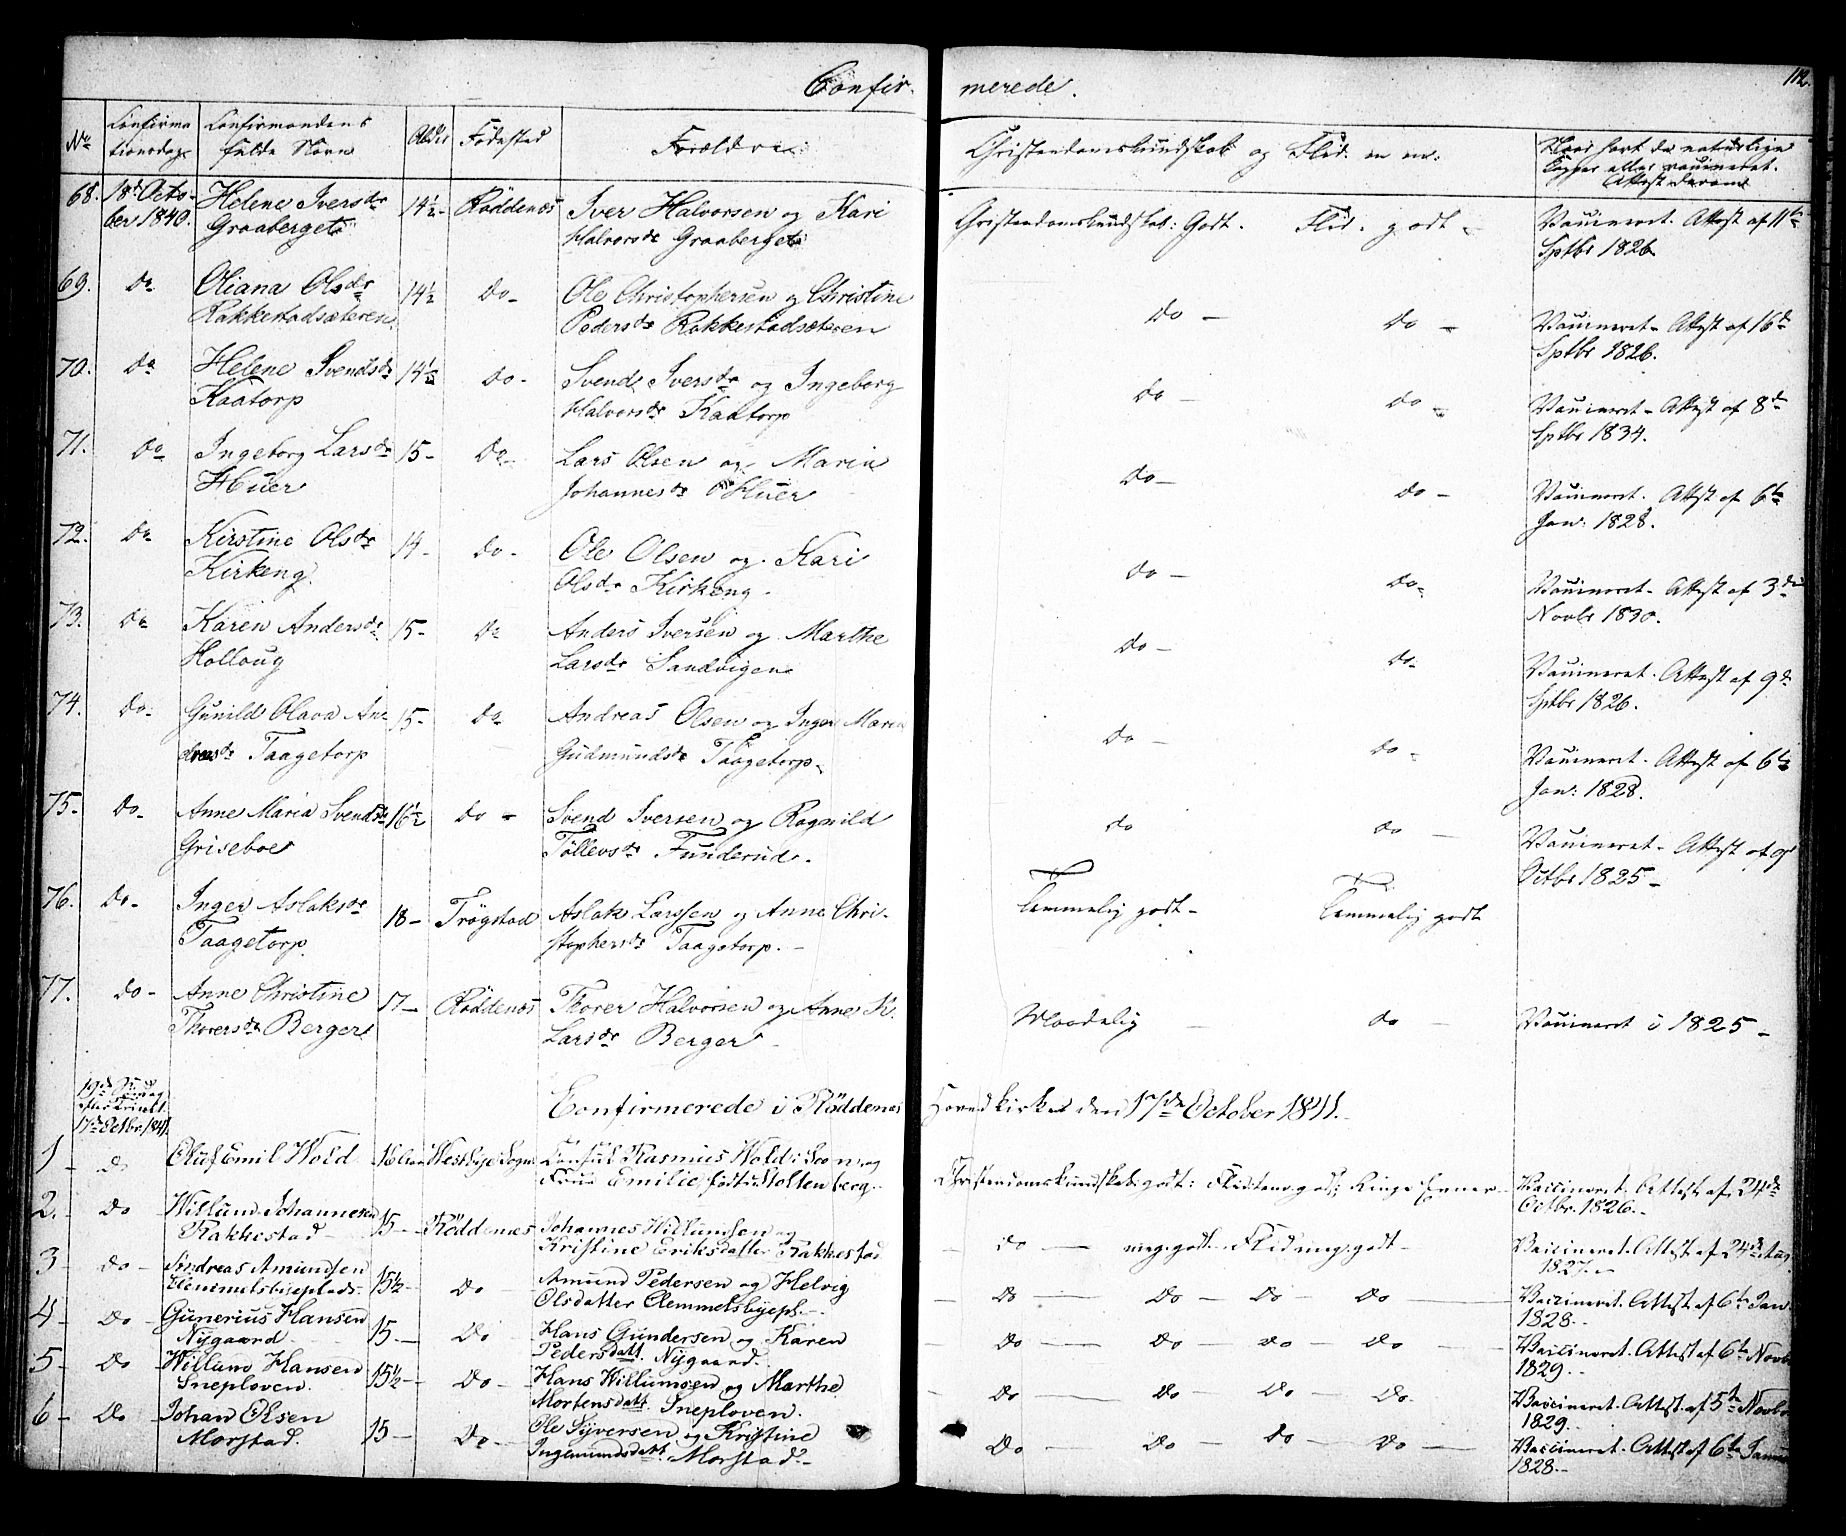 Confir- merede.
112.
No
Confirma
tionsdag
Confirmandens
fulde Navn
Alder
Fødested
Forældre:
Christendomskundskab og Flid. m. m:
Hvor havt de naturlige
Kopper eller vaccineret.
Attest derom
68. 18de Octo- Helene Iversdr 14½- Röddenæs Iver Halvorsen og Kari Christendomskundskab: Godt. Flid. godt - Vaccineret. Attest af 11te
ber 1840. Graaberget Halvorsdr Graaberget Sptbr 1826.
69. Do Oliana Olsdr 14½ Do- Ole Christophersen og Christine Do - Do - Vaccineret- Attest af 16de
Rakkestadsæteren Pedersdr Rakkestadsæteren Sptbr 1826.
70. Do Helene Svendsdr 14½ Do- Svend Iversdr og Ingeborg Do - Do - Vaccineret- Attest af 8de
Kaatorp Halvorsdr Kaatorp Sptbr 1834.
71. Do Ingeborg Larsdr 15- Do- Lars Olsen og Maria Do- Do - Vaccineret. Attest af 6te
Huer Johannesdr Huer Jan: 1828.
72. Do Kirstine Olsdr 14- Do- Ole Olsen og Kari Do - Do- Vaccineret- Attest af 3die
Kirkeng. Olsdr Kirkeng. Novbr 1830.
73. Do Karen Andersdr 15- Do Anders Iversen og Marthe Do - Do- Vaccineret. Attest af 9de
Holloug Larsdr Sandvigen Sptbr 1826.
74. Do- Gunild Olava An- 15- Do Andreas Olsen og Inger Maria Do - Do - Vaccineret. Attest af 6te
dreasdr Taagetorp Gudmundsdr Taagetorp. Jan: 1828.
75- Do- Anne Maria Svendsdr 16½ Do - Svend Iversen og Ragnild Do Do - Vaccineret- Attest af 9de
Griseboe Tollevsdr Funderud. Octbr 1825-
76. Do- Inger Aslaksdr 18- Trögstad Aslak Larssen og Anne Chri- Temmelig godt- Temmelig godt
Taagetorp. stophersdr Taagetorp.-
77. Do- Anne Christine 17- Röddenæs Thorer Halvorsen og Anne K. Maadelig - Do - Vaccineret i 1825-
Thorersdr Berger Larsdr Berger-
19de Søndag
efter Trinit.
17de Octbr. 1841.
Confirmerede i Röddenæs Hovedkirke den 17de October 1841.
1- Do Oluf Emil Wold 16 Aar Westbye Sogn Consul Rasmus Wold i Soon og
Frue Emilie født Stoltenberg. Christendomskundskab: godt: Flid meg. godt; Ringe Evner- Vaccineret. Attest af 24de
Octbr. 1826.-
2.- Do Willum Johannesen 15- Röddenæs Johannes Willumsen og
Rakkestad Kristine Eriksdatter Rakkestad - Do - meg. godt. Flid meg. godt- Vaccineret. Attest af 24de Aug
1827.-
3- Do- Andreas Amundsen 15½- Do Amund Pedersen og Helvig
Klemmetsbyeplads. Olsdatter Clemmetsbyepl.- - Do - Do - Do - Do - Vaccineret. Attest af 6te Jan
1828.-
4- Do- Gunerius Hansen 15- Do Hans Gundersen og Karen
Nygaard- Pedersdatt. Nygaard. - Do - Do - Do - Do - Vaccineret. Attest af 6te Novb
1829.-
5- Do- Willum Hansen 15½- Do- Hans Willumsen og Marthe
Sneploven. Mortensdatt. Sneploven. - Do - Do - Do - Do. - Vaccineret. Attest af 5te Novb
1829.-
6- Do- Johan Olsen 15- Do- Ole Syversen og Kristine
Morstad. Ingemundsdatt. Morstad.- Do - Do - Do - Do - Vaccineret. Attest af 6te Janu
1828.-